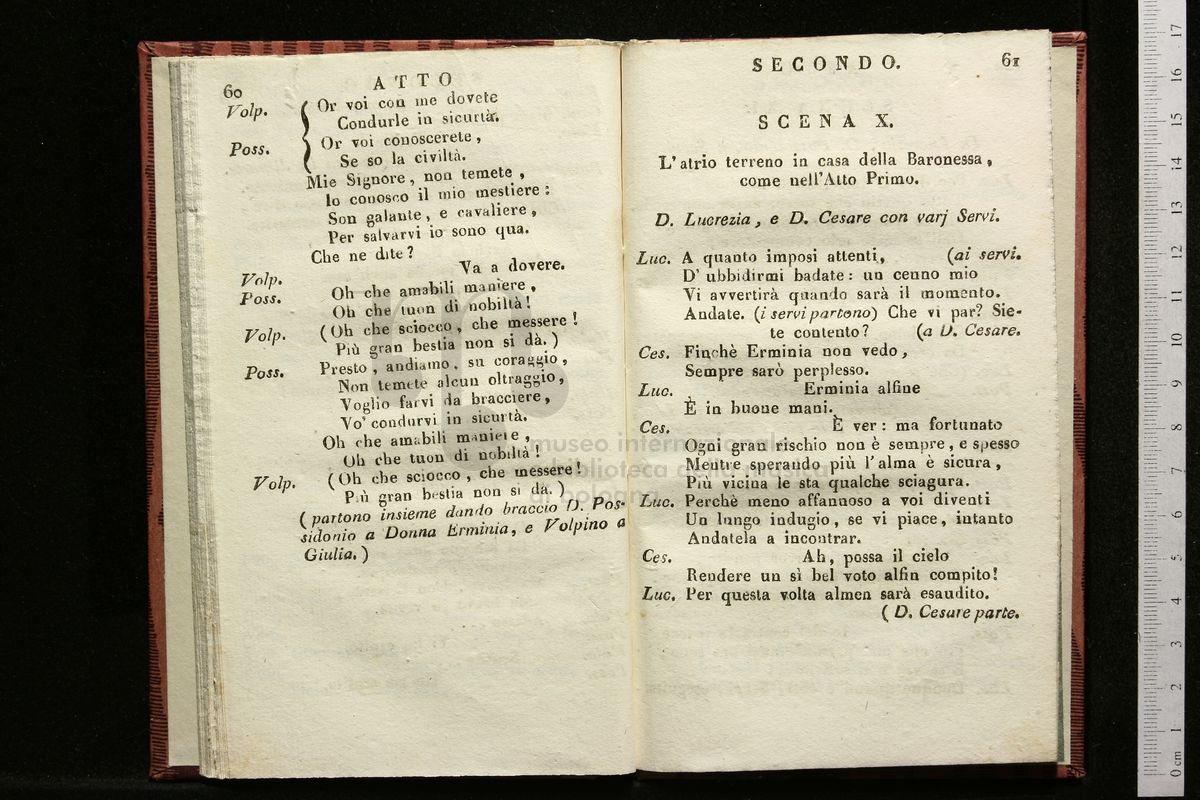 60
ATTO
Volp. Or voi con me dovete
Condurle in sicurtà.
Poss. Or voi conoscerete,
Se so la civiltà.
Mie Signore, non temete,
Io conosco il mio mestiere:
Son galante, e cavaliere,
Per salvarvi io sono qua.
Che ne dite?
Volp. Va a dovere.
Poss. Oh che amabili maniere,
Oh che tuon di nobiltà!
Volp. (Oh che sciocco, che messere!
Più gran bestia non si dà.)
Poss. Presto, andiamo, su coraggio,
Non temete alcun oltraggio,
Voglio farvi da bracciere,
Vo' condurvi in sicurtà.
Oh che amabili maniere,
Oh che tuon di nobiltà!
Volp. (Oh che sciocco, che messere!
Più gran bestia non si dà.)
(partono insieme dando braccio D. Pos-
sidonio a Donna Erminia, e Volpino a
Giulia.)
SECONDO. 61
SCENA X.
L'atrio terreno in casa della Baronessa,
come nell'Atto Primo.
D. Lucrezia, e D. Cesare con varj Servi.
Luc. A quanto imposi attenti, (ai servi.
D'ubbidirmi badate: un cenno mio
Vi avvertirà quando sarà il momento.
Andate. (i servi partono) Che vi par? Sie-
te contento? (a D. Cesare.
Ces. Finchè Erminia non vedo,
Sempre sarò perplesso.
Luc. Erminia alfine
È in buone mani.
Ces. È ver: ma fortunato
Ogni gran rischio non è sempre, e spesso
Mentre sperando più l'alma è sicura,
Più vicina le sta qualche sciagura.
Luc. Perchè meno affannoso a voi diventi
Un lungo indugio, se vi piace, intanto
Andatela a incontrar.
Ces. Ah, possa il cielo
Rendere un sì bel voto alfin compito!
Luc. Per questa volta almen sarà esaudito.
(D. Cesare parte.
museo internazionale
biblioteca della musica
di bologna
0 cm 1 2 3 4 5 6 7 8 9 10 11 12 13 14 15 16 17